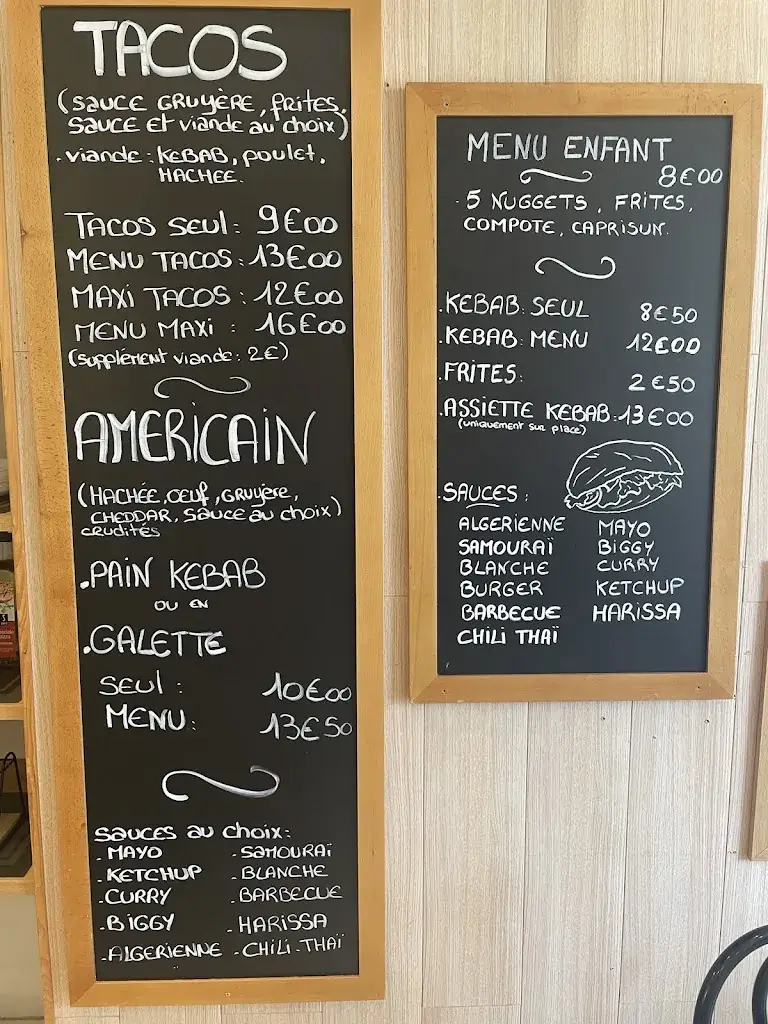 TACOS
(SAUCE GRUYÈRE, frites,
SAUCE Et viande au choix)
.viande: KEBAB, poulet,
HACHÉE.
TACOS SEUL: 9€00
MENU TACOS: 13€00
MAXI TACOS: 12€00
MENU MAXI: 16€00
(Supplément viande: 2€)
AMERICAIN
(HACHÉE, OEUF, GRUYÈRE,
CHEDDAR, SAUCE au choix)
CRUDITÉS
.PAIN KEBAB
OU EN
.GALETTE
SEUL: 10€00
MENU: 13€50
SAUCES AU CHOIX:
.MAYO -SAMOURAÏ
.KETCHUP -BLANCHE
.CURRY -BARBECUE
.BIGGY -HARISSA
-ALGERIENNE -CHILI-THAÏ
MENU ENFANT
8€00
.5 NUGGETS, FRITES,
COMPOTE, CAPRISUN.
.KEBAB: SEUL 8€50
.KEBAB: MENU 12€00
.FRITES: 2€50
.ASSIETTE KEBAB: 13€00
(uniquement sur place)
.SAUCES:
ALGERIENNE MAYO
SAMOURAÏ BIGGY
BLANCHE CURRY
BURGER KETCHUP
BARBECUE HARISSA
CHILI THAÏ